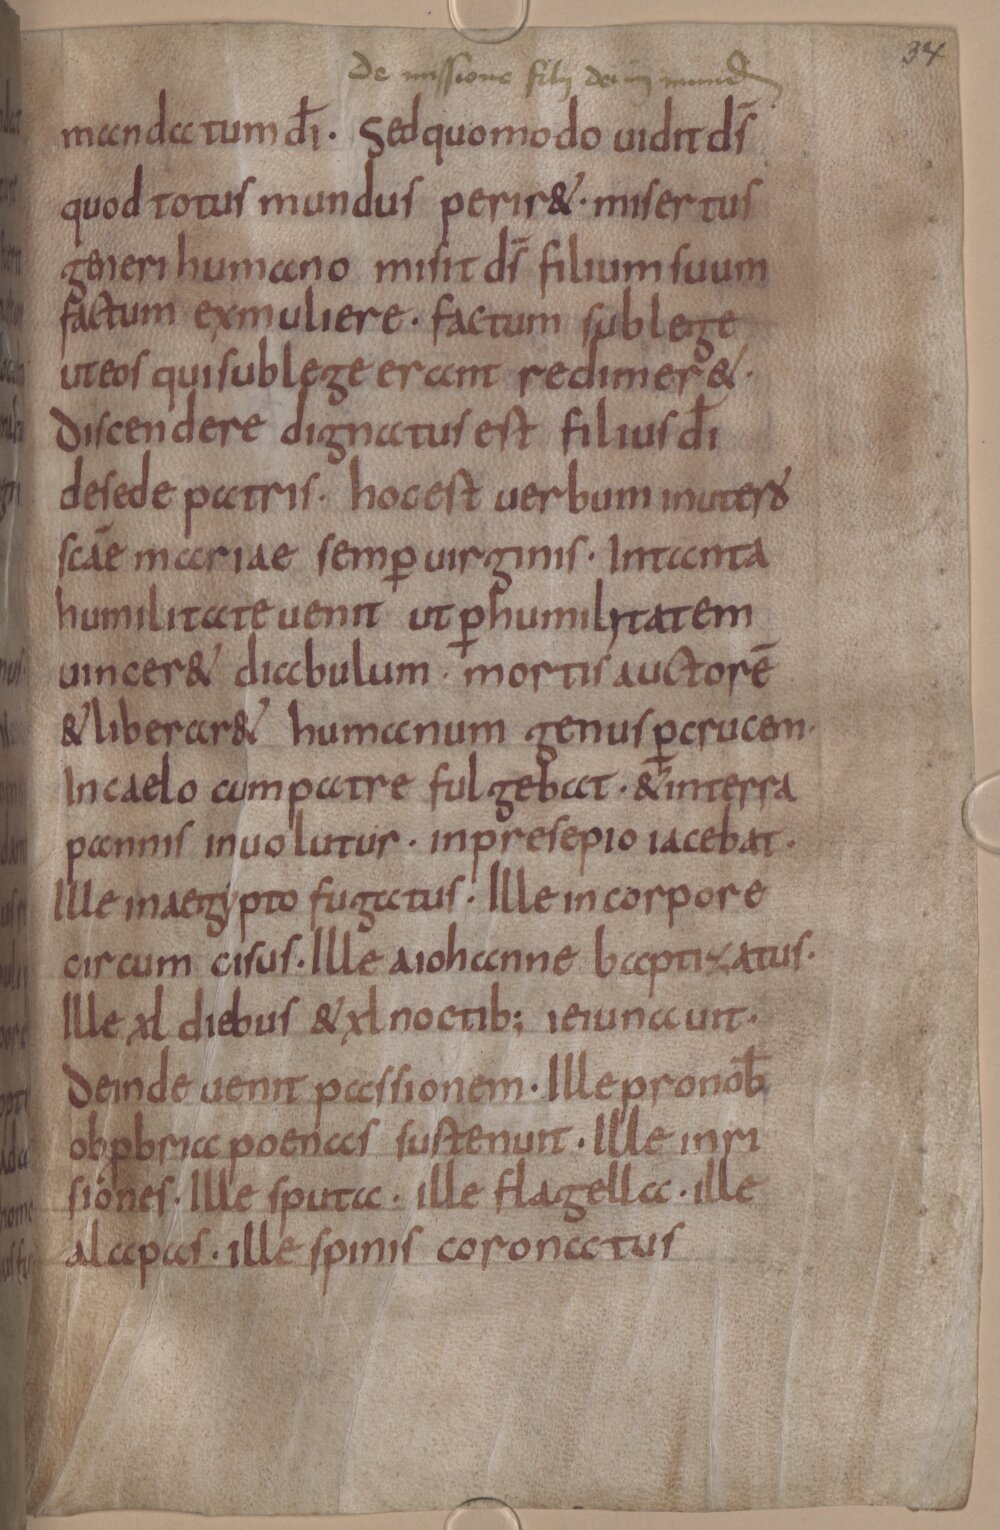 34
De missione filij dei in mund
mandatum dī. Sed quomodo uidit ds̄
quod totus mundus perir&. misertus
generi humano misit ds̄ filium suum
factum exmuliere. factum sublege
uteos quisublege erant redimer&.
Discendere dignatus est filius dī
desede patris. hocest uerbum inutero
scāe mariae semꝑ uirginis. Intanta
humilitate uenit ut ꝑhumilitatem
uincer& diabulum. mortis auctorē
&liberar& humanum genus ꝑcrucem.
Incaelo cumpatre fulgebat. &interra
pannis inuolutur. inpresepio iacebat.
Ille inaegypto fugatus. Ille incorpore
circum cisus. Ille aiohanne baptizatus.
Ille xl diebus & xl noctib; ieiunauit.
Deinde uenit passionem. Ille pronob̄
obpbria poenas sustenuit. Ille inri
siones. Ille sputa. ille flagella. ille
alapas. ille spinis coronatus